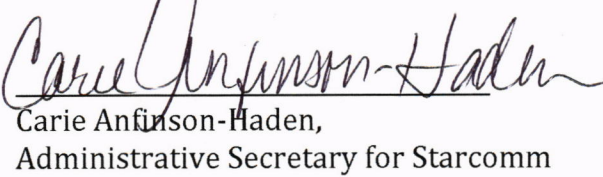 Carie Anfinson-Haden
Carie Anfinson-Haden,
Administrative Secretary for Starcomm